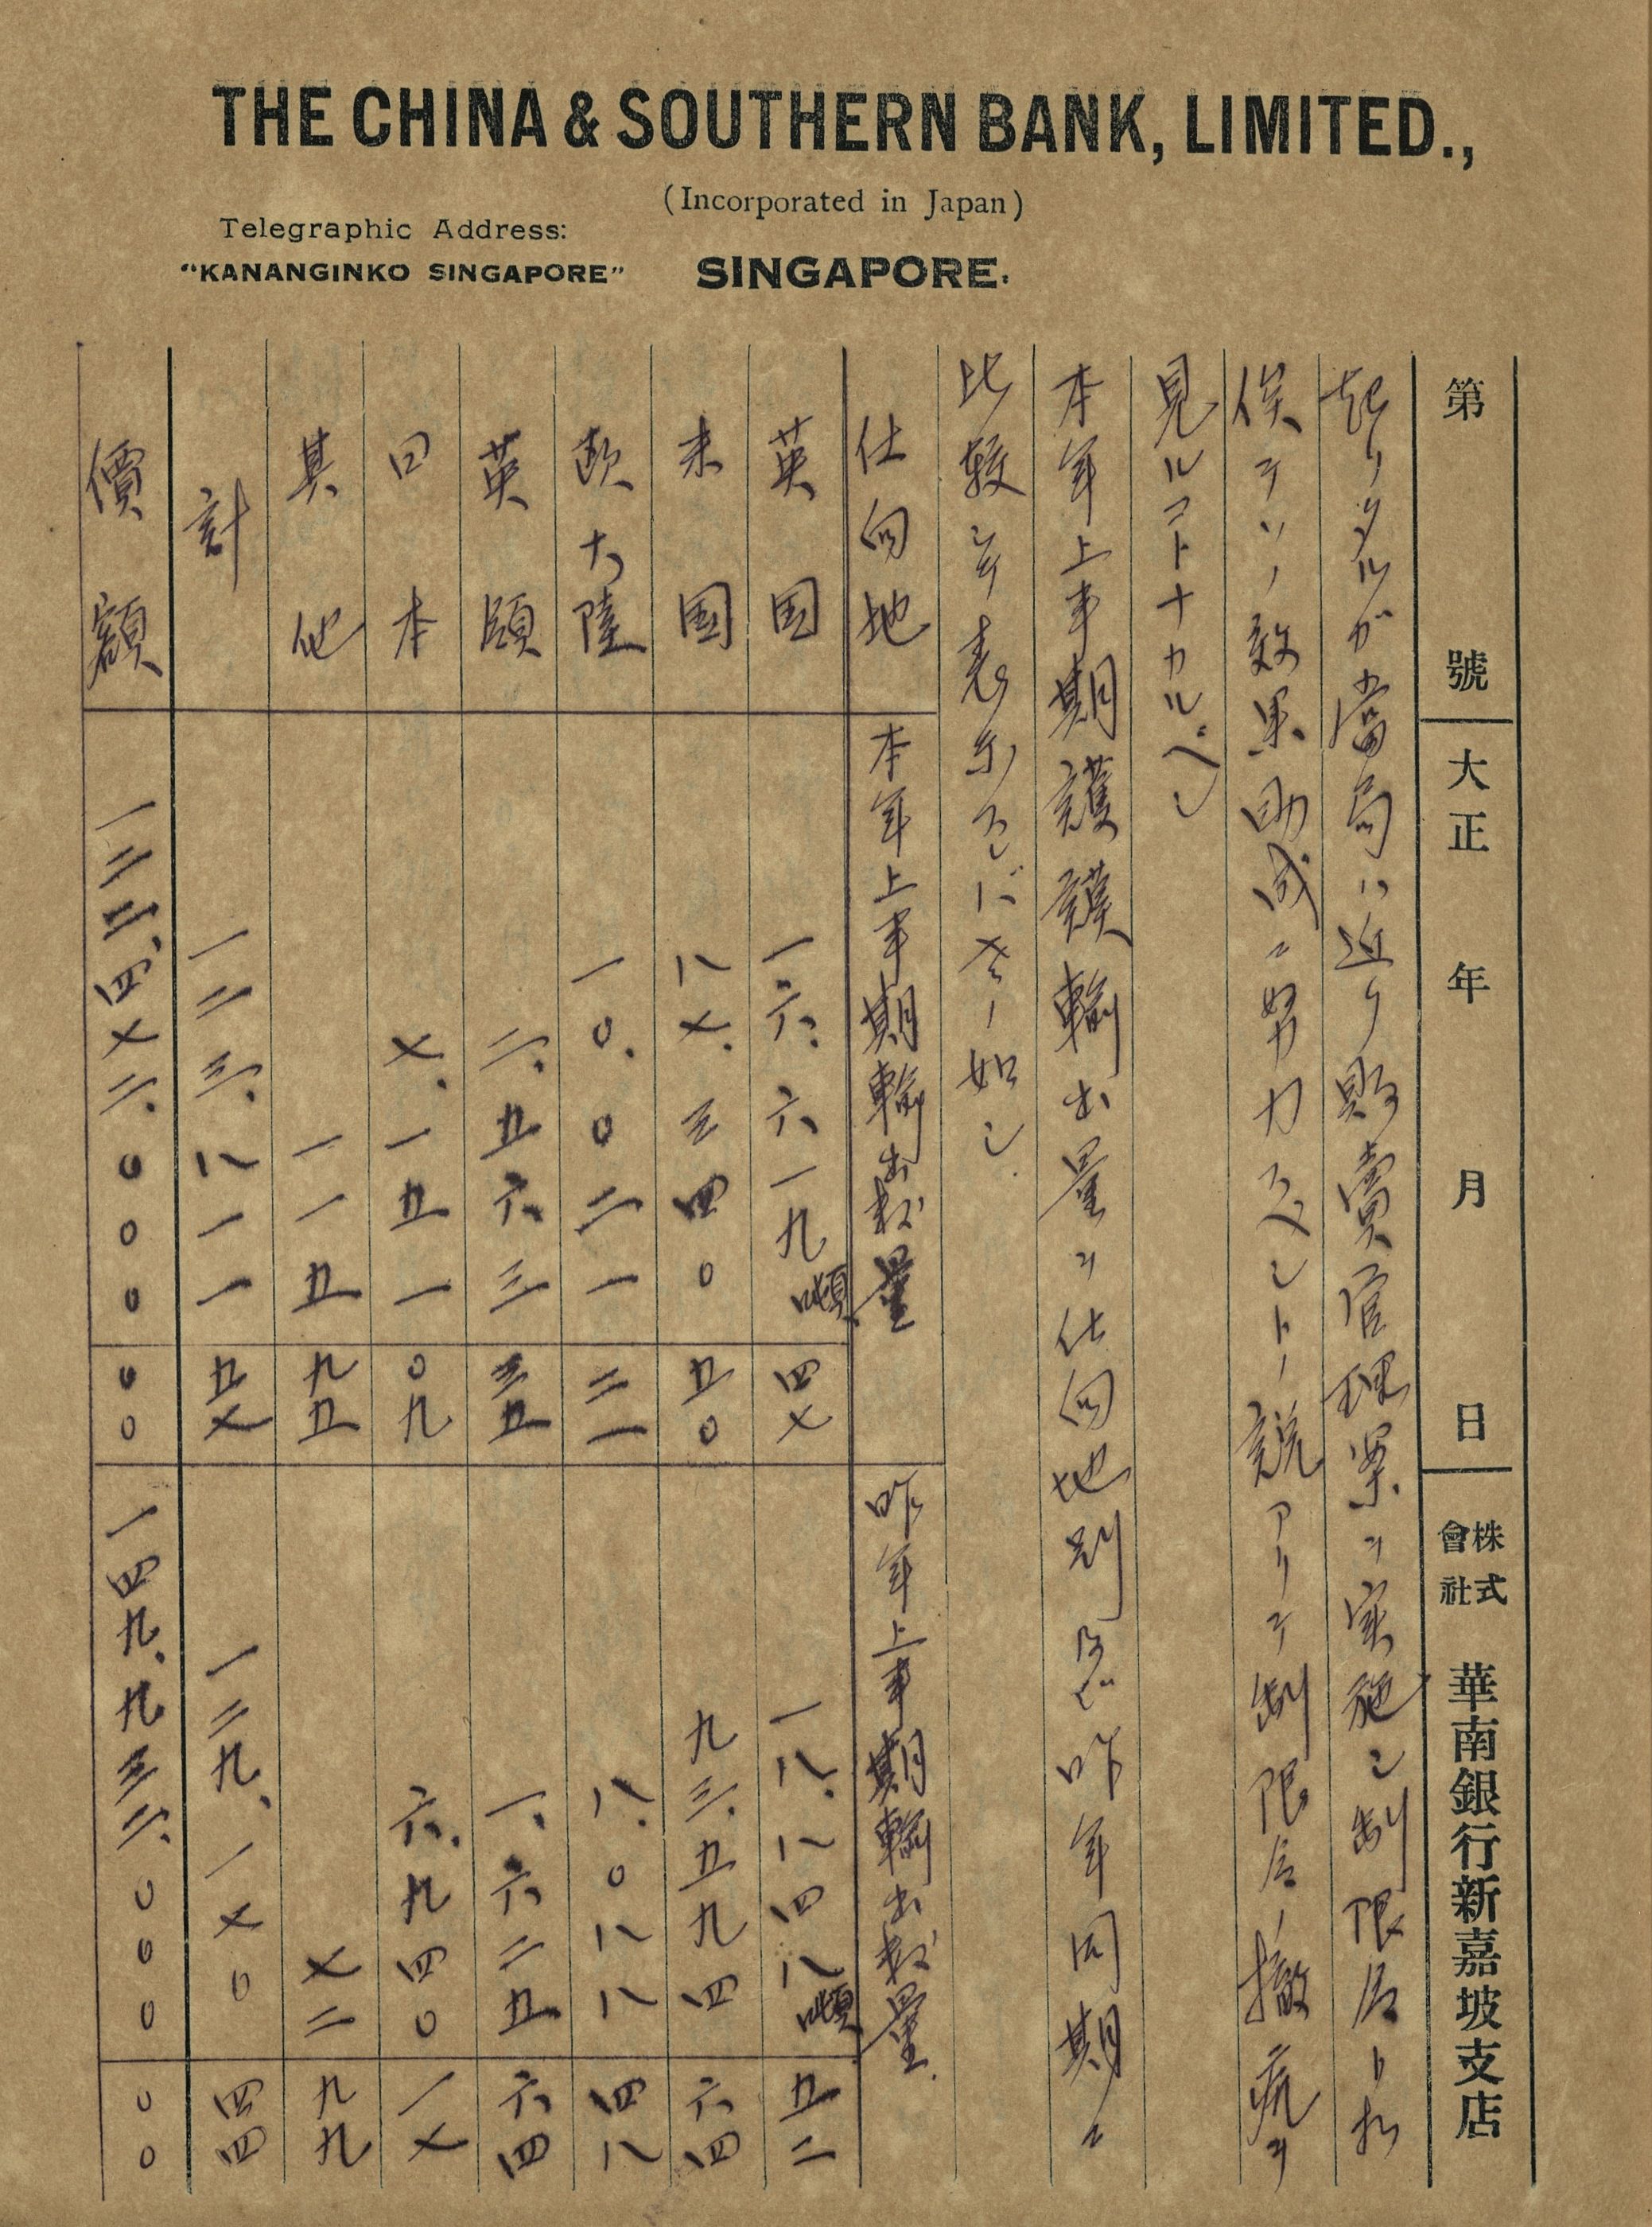 THE CHINA & SOUTHERN BANK, LIMITED.,
(Incorporated in Japan)
Telegraphic Address:
"KANANGINKO SINGAPORE"
SINGAPORE.
第 號 大正 年 月 日 株式會社 華南銀行新嘉坡支店
起リタルガ當局ハ近リ賣官理案ヲ実施シ制限
俟テソノ效果助成ニ努力スベシトノ説アリテ制限令ノ撤廃ヲ
見ルコトナカルベシ
本年上半期護謨輸出量ヲ仕向地別昨年同期ニ
比較シテ表示スレバ如シ
仕向地 本年上半期輸出数量 昨年上半期輸出数量
英国 一六.六一九噸 四七 一八.八四八噸 五二
米国 八七.三四〇 五〇 九三.五九四 六四
欧大陸 一〇.〇二一 二一 八.〇八八 四八
英領 二.五六三 三五 一.六二五 六四
日本 七.一五一 〇九 六.九四〇 一七
其他 一一五 九五 七二 九九
計 一二三.八一一 五七 一二九.一七〇 四四
價額 一二二、四七二.〇〇〇 〇〇 一四九.九三二.〇〇〇 〇〇